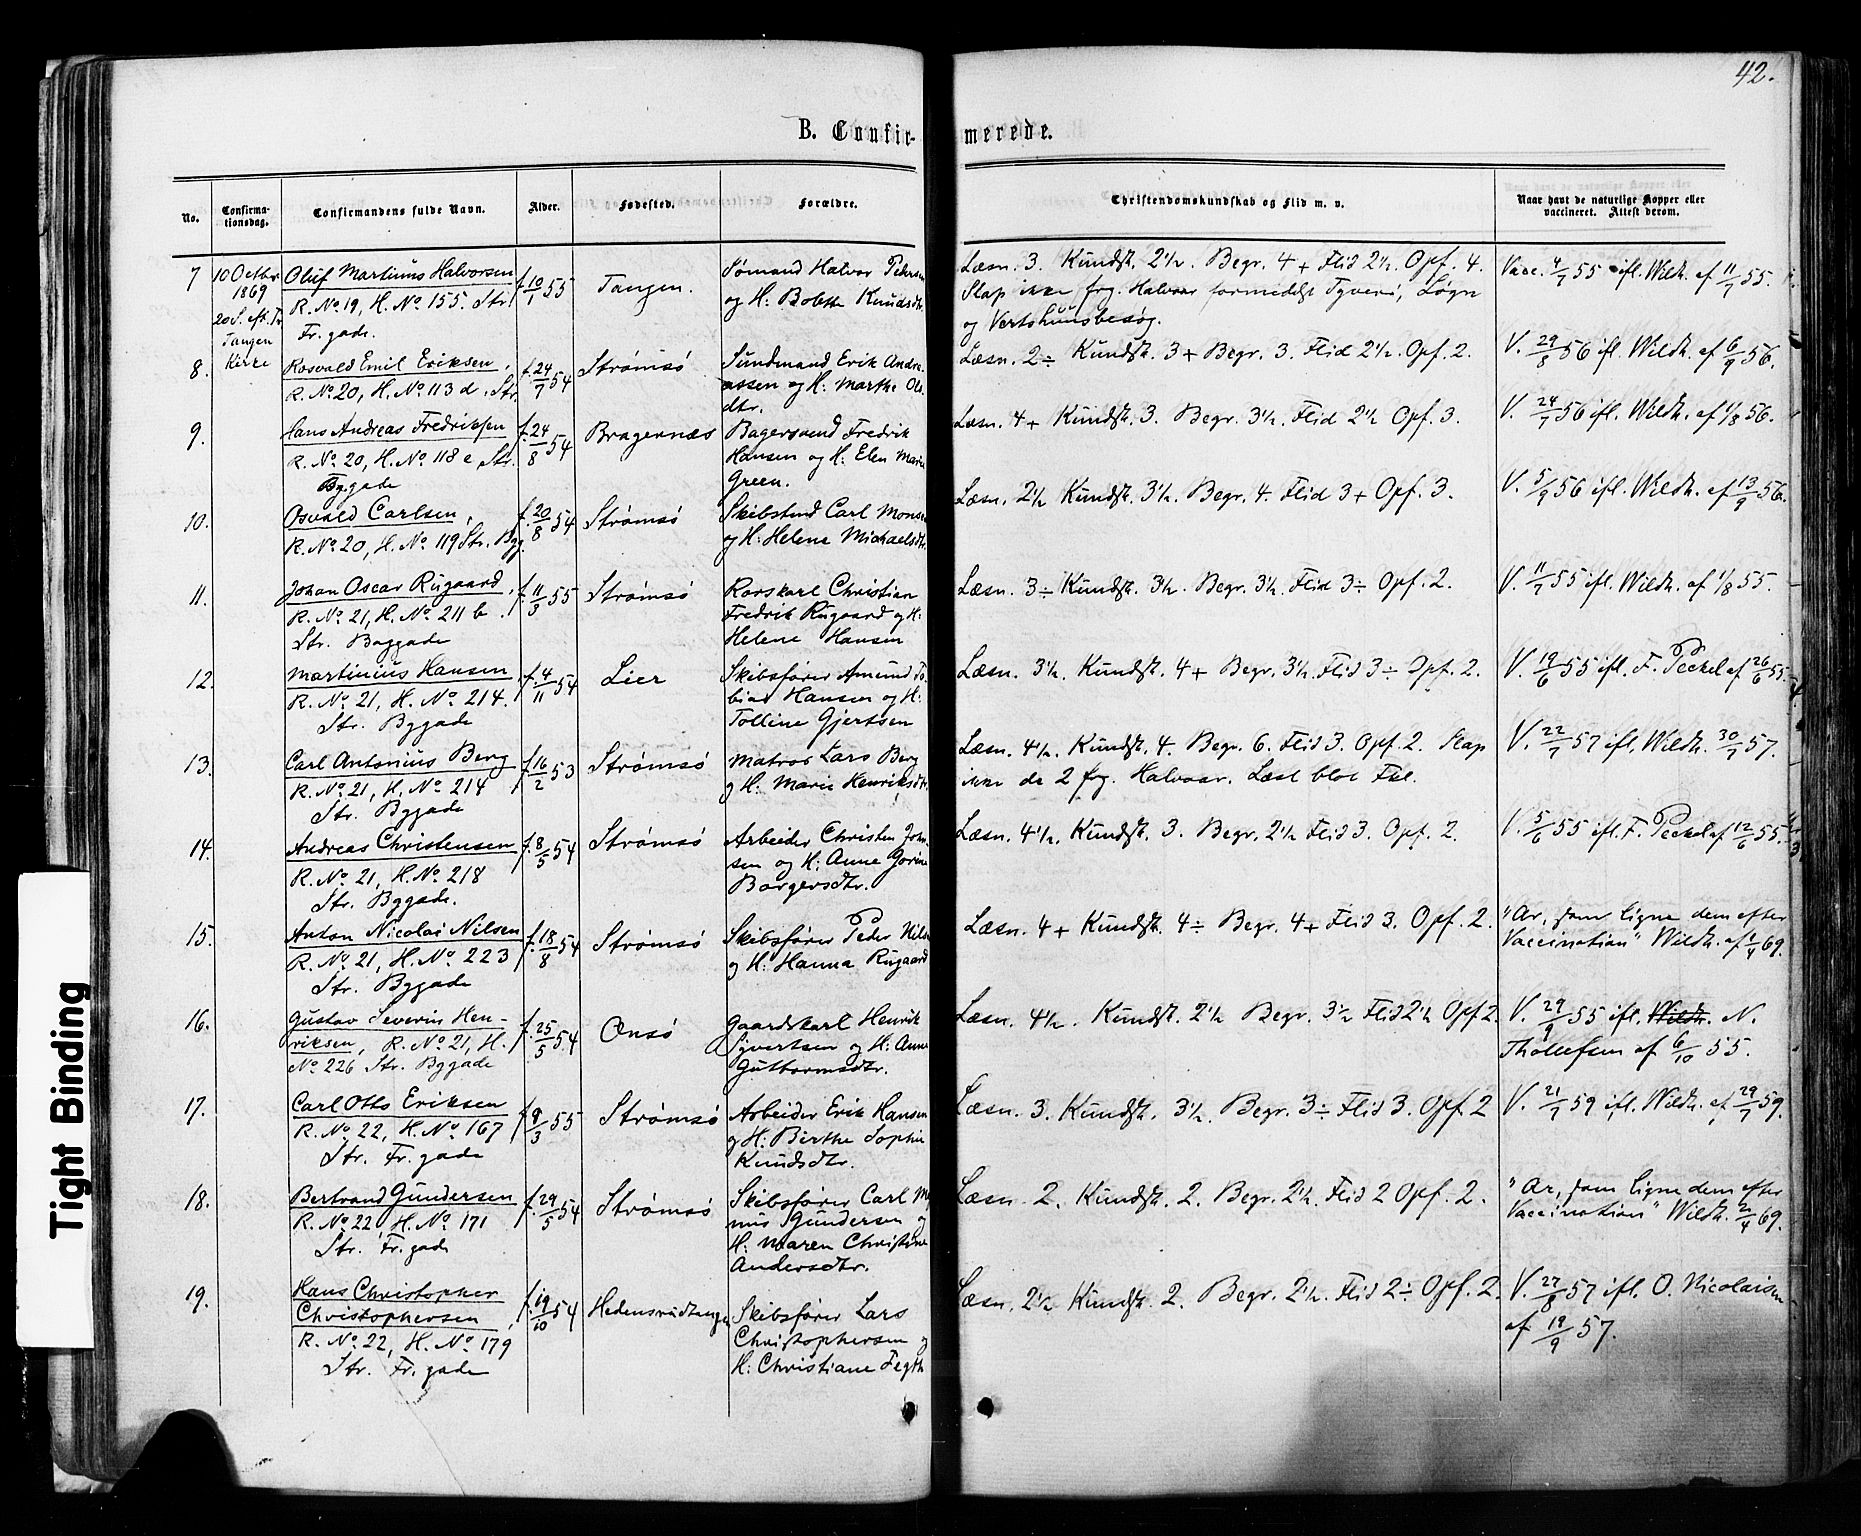 42.
B. Confir-
merede.
No.
Confirma-
tionsdag.
Confirmandens fulde Navn.
Alder.
Fødested.
Forældre.
Christendomskundskab og Flid m. v.
Naar havt de naturlige Kopper eller
vaccineret. Attest derom.
7 10 Octbr Oluf Martinius Halvorsen f. 10/1 55 Tangen. Sømand Halvor Pedersen Læsn. 3. Kundsk. 2½. Begr. 4 + Flid 2½. Opf. 4. Vacc. 4/7 55 ifl. Wildh. af 11/7 55.
1869 R. No 19, H. No 155. Str. og H: Bolette Knudsdtr. Slap ikke frg. Halvaar formedelst Tyveri, Løgn
20 S. eft. Tr. Fr. gade. og Vertshuusbesøg.
Tangen
Kirke
8. Rosvald Emil Eriksen, f. 24/7 54 Strømsö Sundmand Erik Andre- Læsn. 2 ÷ Kundsk. 3 + Begr. 3. Flid 2½. Opf. 2. V. 29/8 56 ifl. Wildh. af 6/9 56.
R. No 20, H. No 113 d. Str. assen og H: Marthe Ols
dtr.
9. Hans Andreas Fredriksen f. 24/8 54 Bragernæs Bagersvend Fredrik Læsn. 4 + Kundsk. 3. Begr. 3½. Flid 2½ Opf. 3. V. 24/7 56 ifl. Wildh. af 1/8 56.
R. No 20, H. No 118 e, Str. Hansen og H: Elen Marie
Bg. gade Green.
10. Osvald Carlsen, f. 20/8 54 Strømsö Skibstmd Carl Monsen Læsn. 2½ Kundsk. 3½. Begr. 4. Flid 3 + Opf. 3. V. 5/9 56 ifl. Wildh. af 13/9 56.
R. No 20, H. No 119 Str. Byg. og H: Helene Michaelsdtr.
11. Johan Oscar Rugaard, f. 11/3 55 Strømsö Rorskarl Christian Læsn. 3 ÷ Kundsk. 3½. Begr. 3½. Flid 3 ÷ Opf. 2. V. 11/7 55 ifl. Wildh. af 1/8 55.
R. No 21, H. No 211 b. Fredrik Rugaard og H:
Str. Baggade Helene Hansen
12. Martinius Hansen f. 4/11 54 Lier Skibsfører Amund To- Læsn. 3½. Kundsk. 4 + Begr. 3½. Flid 3 ÷ Opf. 2. V. 19/6 55 ifl. F. Peckel af 26/6 55.
R. No 21, H. No 214. bias Hansen og H:
Str. Bygade Tolline Gjertsen
13. Carl Antonius Berg f. 16/2 53 Strømsö Matros Lars Berg Læsn. 4½. Kundsk. 4. Begr. 6. Flid 3. Opf. 2. Slap V. 22/7 57 ifl. Wildh. 30/7 57.
R. No 21, H. No 214 og H: Marie Henriksdtr. ikke de 2 frg. Halvaar. Læst blot Fkl.
Str. Bygade
14. Andreas Christensen f. 8/5 54 Strømsö Arbeider Christen John- Læsn. 4½. Kundsk. 3. Begr. 2½ Flid 3. Opf. 2. V. 5/6 55 ifl. F. Peckel af 12/6 55.
R. No 21, H. No 218 sen og H: Anne Gorine
Str. Bygade. Borgersdtr.
15. Anton Nicolai Nilsen f. 18/8 54 Strømsö Skibsfører Peder Nilsen Læsn. 4 + Kundsk. 4 ÷ Begr. 4 + Flid 3. Opf. 2. "Ar, som ligne dem efter
R. No 21, H. No 223 og H: Hanna Rugaard Vaccination" Wildh. af 1/4 69.
Str. Bygade
16. Gustav Severin Hen- f. 25/5 54 Onsö Gaardskarl Henrik Læsn. 4½. Kundsk. 2½ Begr. 3½ Flid 2½ Opf 2. V. 29/9 55 ifl. Wildh. N.
riksen, R. No 21, H. Syvertsen og H: Anne Thollefsen af 6/10 55.
No 226 Str. Bygade Guttormsdtr.
17. Carl Otto Eriksen f. 9/3 55 Strømsö Arbeider Erik Hansen Læsn. 3. Kundsk. 3½. Begr. 3 ÷ Flid 3. Opf. 2 V. 21/7 59 ifl. Wildh. af 29/7 59.
R. No 22, H. No 167 og H: Birthe Sophie
Str. Fr. gade Knudsdtr.
18. Bertrand Gundersen f. 29/5 54 Strømsö Skibsfører Carl Mag- Læsn. 2. Kundsk. 2. Begr. 2½. Flid 2 Opf. 2. "Ar, som ligne dem efter
R. No 22, H. No 171 nus Gundersen og Vaccination" Wildh. 2/4 69.
Str. Fr. gade H: Maren Christine
Andersdtr.
19. Hans Christopher f. 19/10 54 Hedensrudtangen Skibsfører Lars Læsn. 2½ Kundsk. 2. Begr. 2½. Flid 2 ÷ Opf. 2. V. 27/8 57 ifl. O. Nicolaisen
Christophersen, Christophersen og af 19/9 57.
R. No 22, H. No 179 H: Christiane Fegth
Str. Fr. gade
Tight Binding